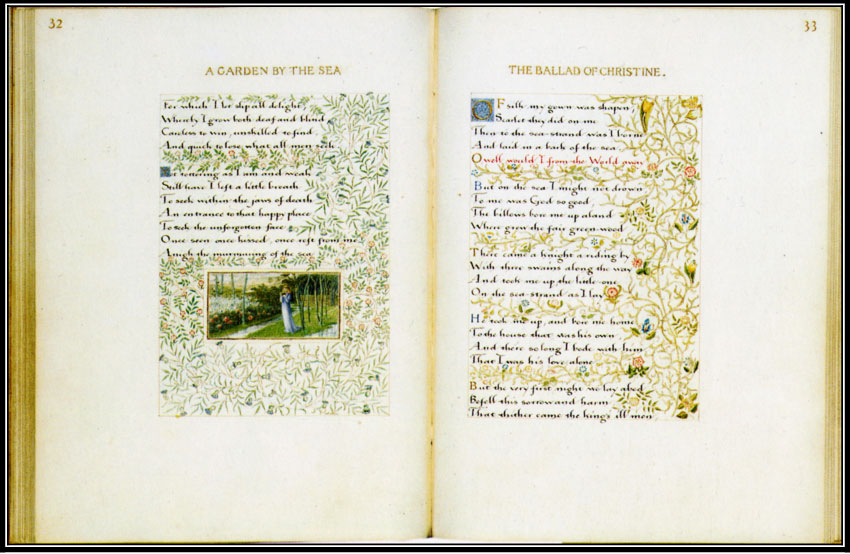 32
A GARDEN BY THE SEA
For which I let slip all delight,
Whereby I grow both deaf and blind
Careless to win, unskilled to find
And quick to lose what all men seek
Yet tottering as I am and weak
Still have I left a little breath
To seek within the jaws of death
An entrance to that happy place
To seek the unforgotten face
Once seen once kissed, once reft from me
Anigh the murmuring of the sea
33
THE BALLAD OF CHRISTINE.
OF silk my gown was shapen,
Scarlet they did on me
Then to the sea-strand was I borne
And laid in a bark of the sea
O well would I from the World away
But on the sea I might not drown
To me was God so good
The billows bore me up aland
Where grew the fair green-wood
There came a knight a riding by
With three swains along the way
And took me up the little-one
On the sea-strand as I lay
He took me up, and bore me home
To the house that was his own
And there so long I bode with him
That I was his love alone
But the very first night we lay abed
Befell this sorrow and harm
That thither came the king's ill men